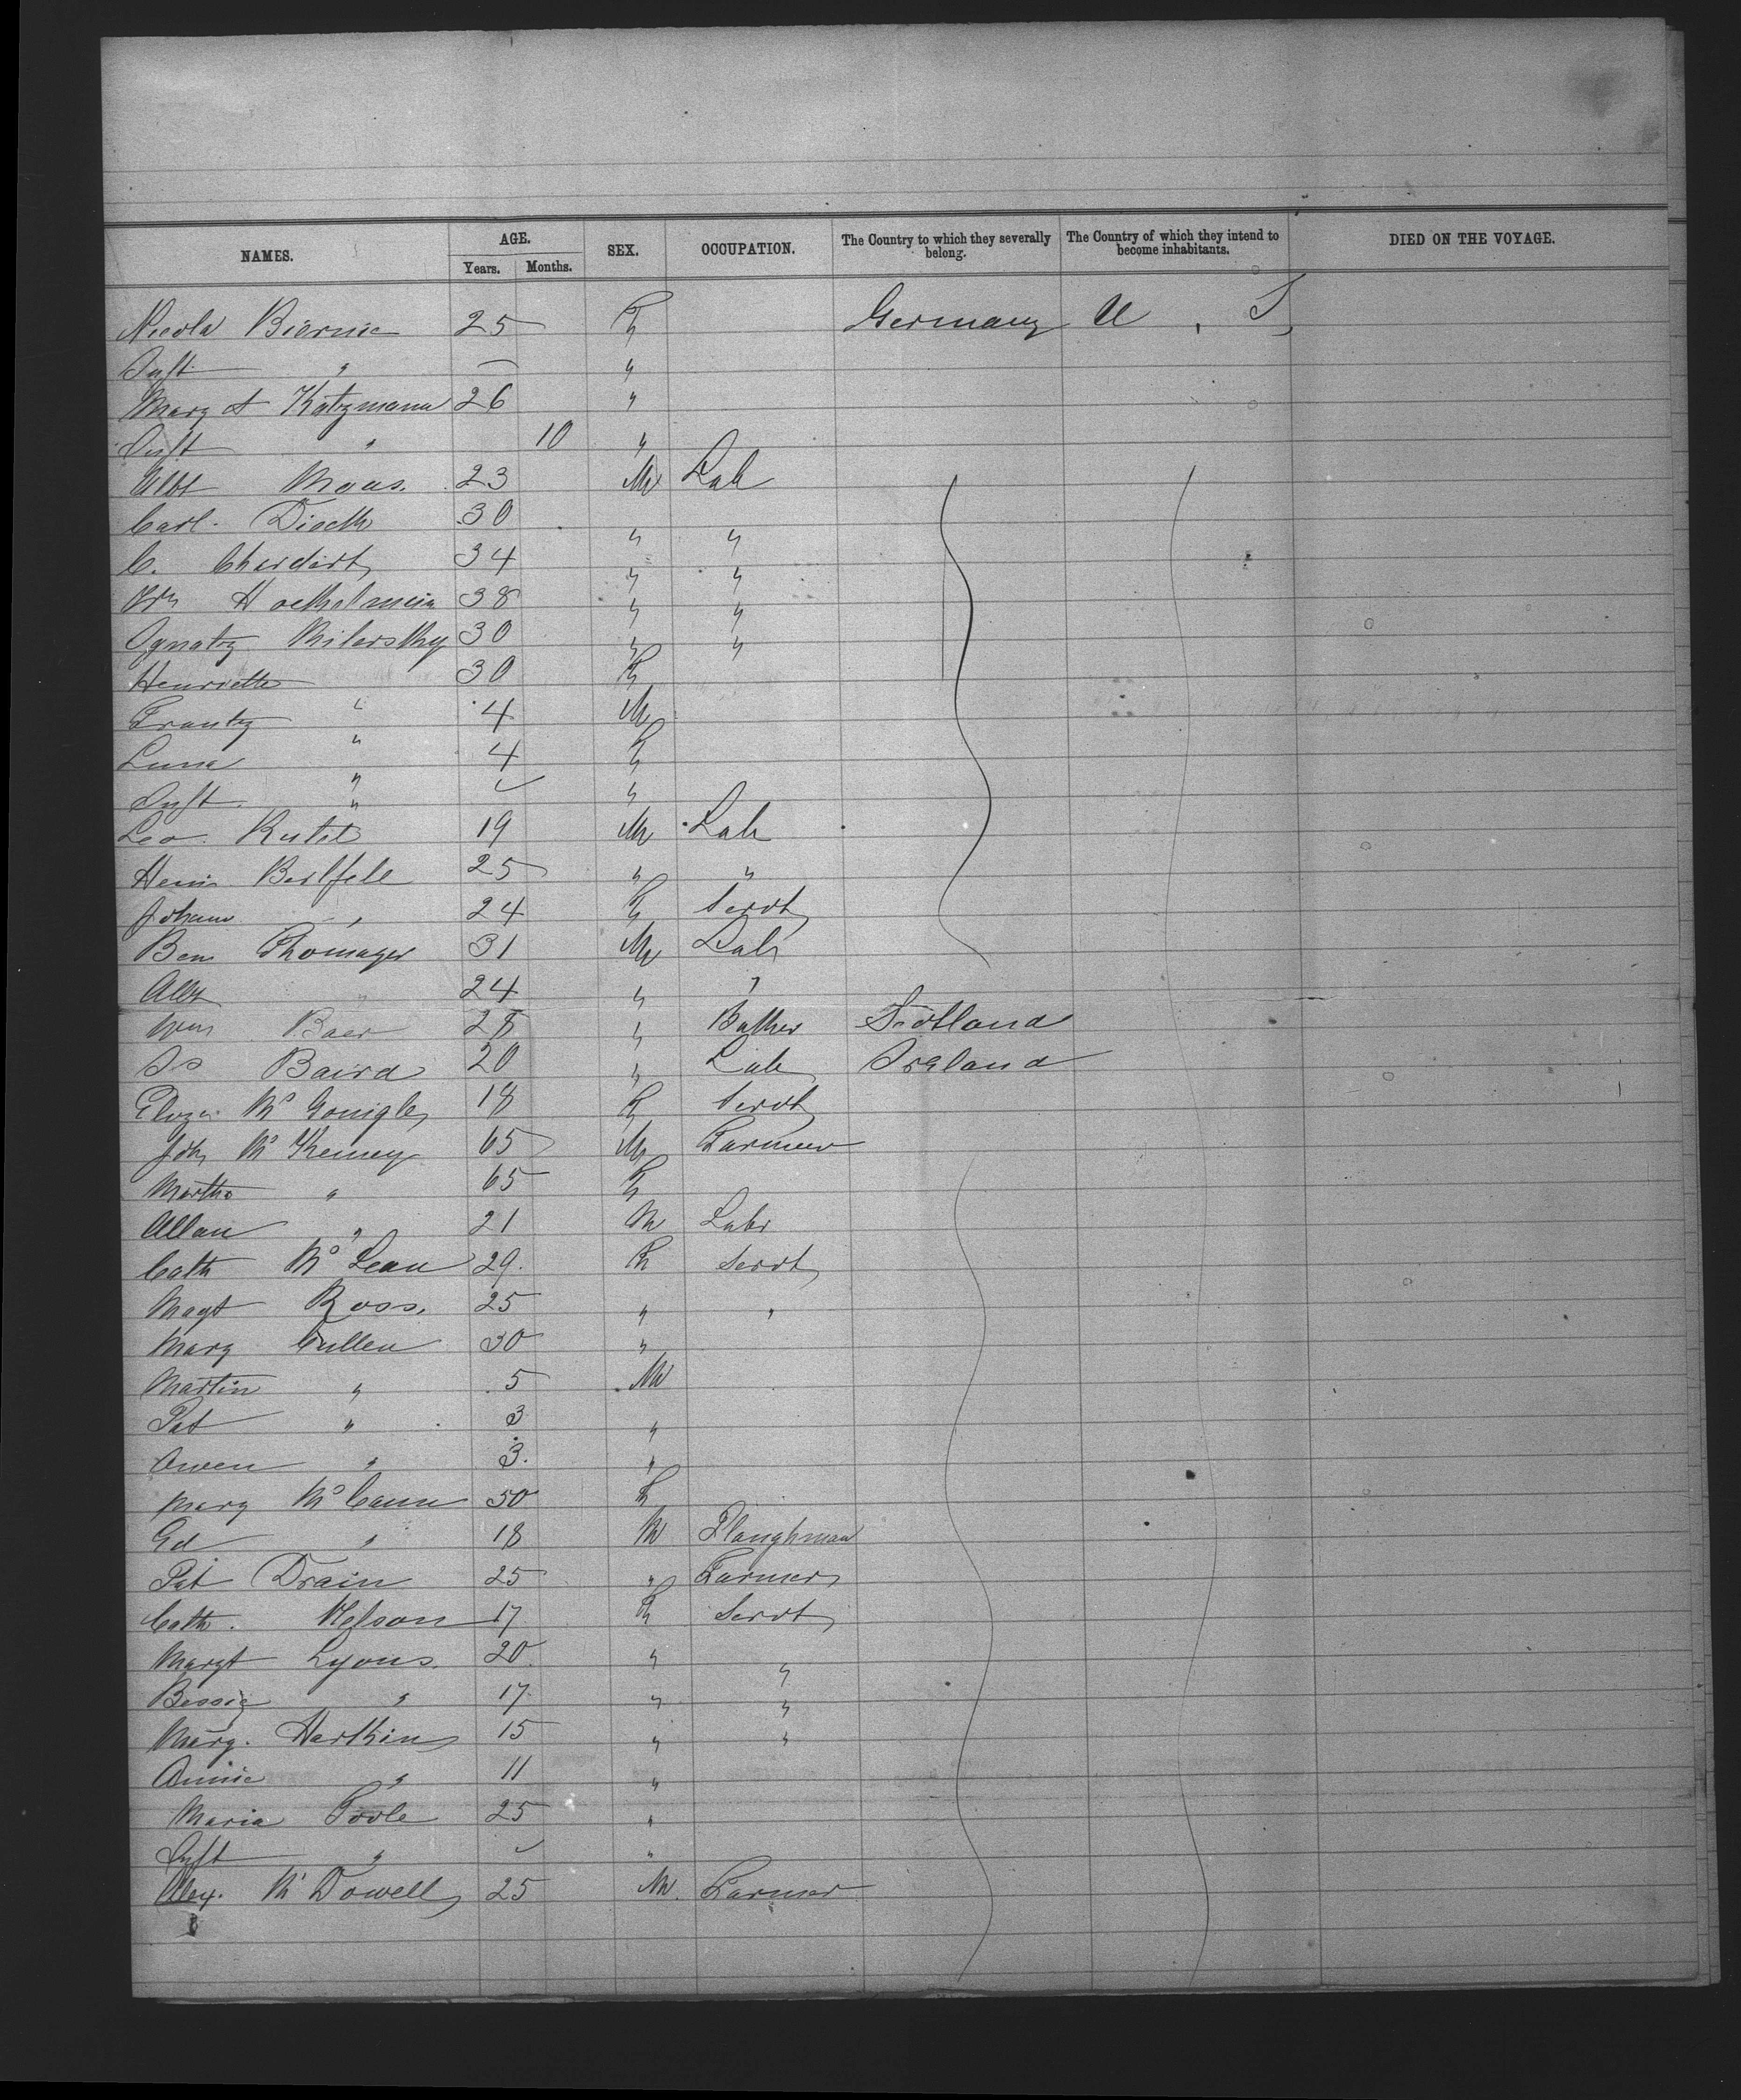 NAMES. AGE. Years. Months. SEX. OCCUPATION. The Country to which they severally belong. The Country of which they intend to become inhabitants. DIED ON THE VOYAGE.
Nicola Biernie 25 F Germany U. S
Inft " — "
Mary A Katzmann 26 "
Inft " 10 "
Albt Maus. 23 M Lab
Carl. 30 " "
C. 34 " "
38 " "
Ignatz 30 " "
Henriette " 30 F
Frantz " 4 M
Luna " 4 F
Inft " "
Leo. Rutel 19 M Lab
25 " "
Johann " 24 F Servt
Ben 31 M Lab
Albt 24 " "
Wm Baer 28 " Scotland
Js Baird 20 " Lab Ireland
Eliza Mc Gonigle 18 F Servt
Jon Mc Kenney 65 M Farmer
Martha " 65 F
Allan " 21 M Labr
Cath Mc Lean 29. F Servt
Magt Ross. 25 " "
Mary Cullen 30 "
Martin " 5 M
Pat " 3 "
Owen " 3. "
Mary Mc Cann 50 F
Ed " 18 M Ploughman
Pat Drain 25 " Farmer
Cath. Nelson 17 F Servt
Margt Lyons. 20 " "
Bessie " 17 " "
Marg. Harkin 15 " "
Annie " 11 "
Maria Toole 25 "
Inft " "
Alex. Mc Dowell 25 M. Farmer